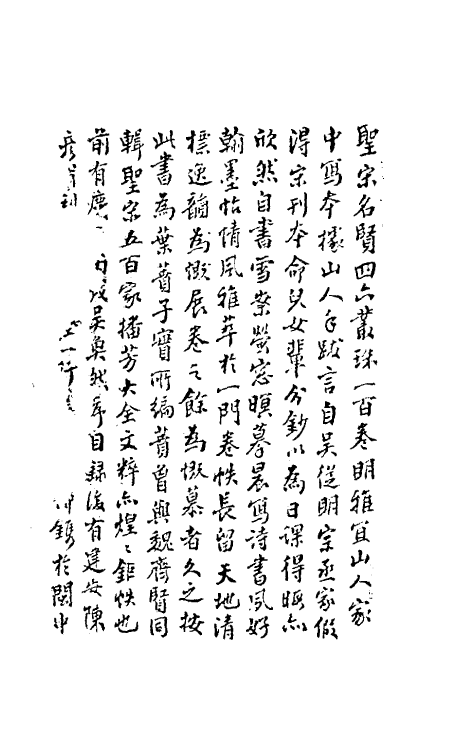 聖宋名賢四六叢珠一百卷明雅宜山人家
中寫本據山人手跋言自吳從明宗丞家假
得宋刊本命兒女輩分鈔以為日課得暇亦
欣然自書雪案螢窓暝摹晨寫詩書夙好
翰墨怡情風雅萃於一門卷帙長留天地清
標逸韻為慨展卷之餘為慨慕者久之按
此書為葉蕡子實所編蕡曾與魏齊賢同
輯聖宋五百家播芳大全文粹亦煌〻鉅帙也
前有 吳奐然序目錄後有建安陳
彥 刊 一行 鐫於閩中